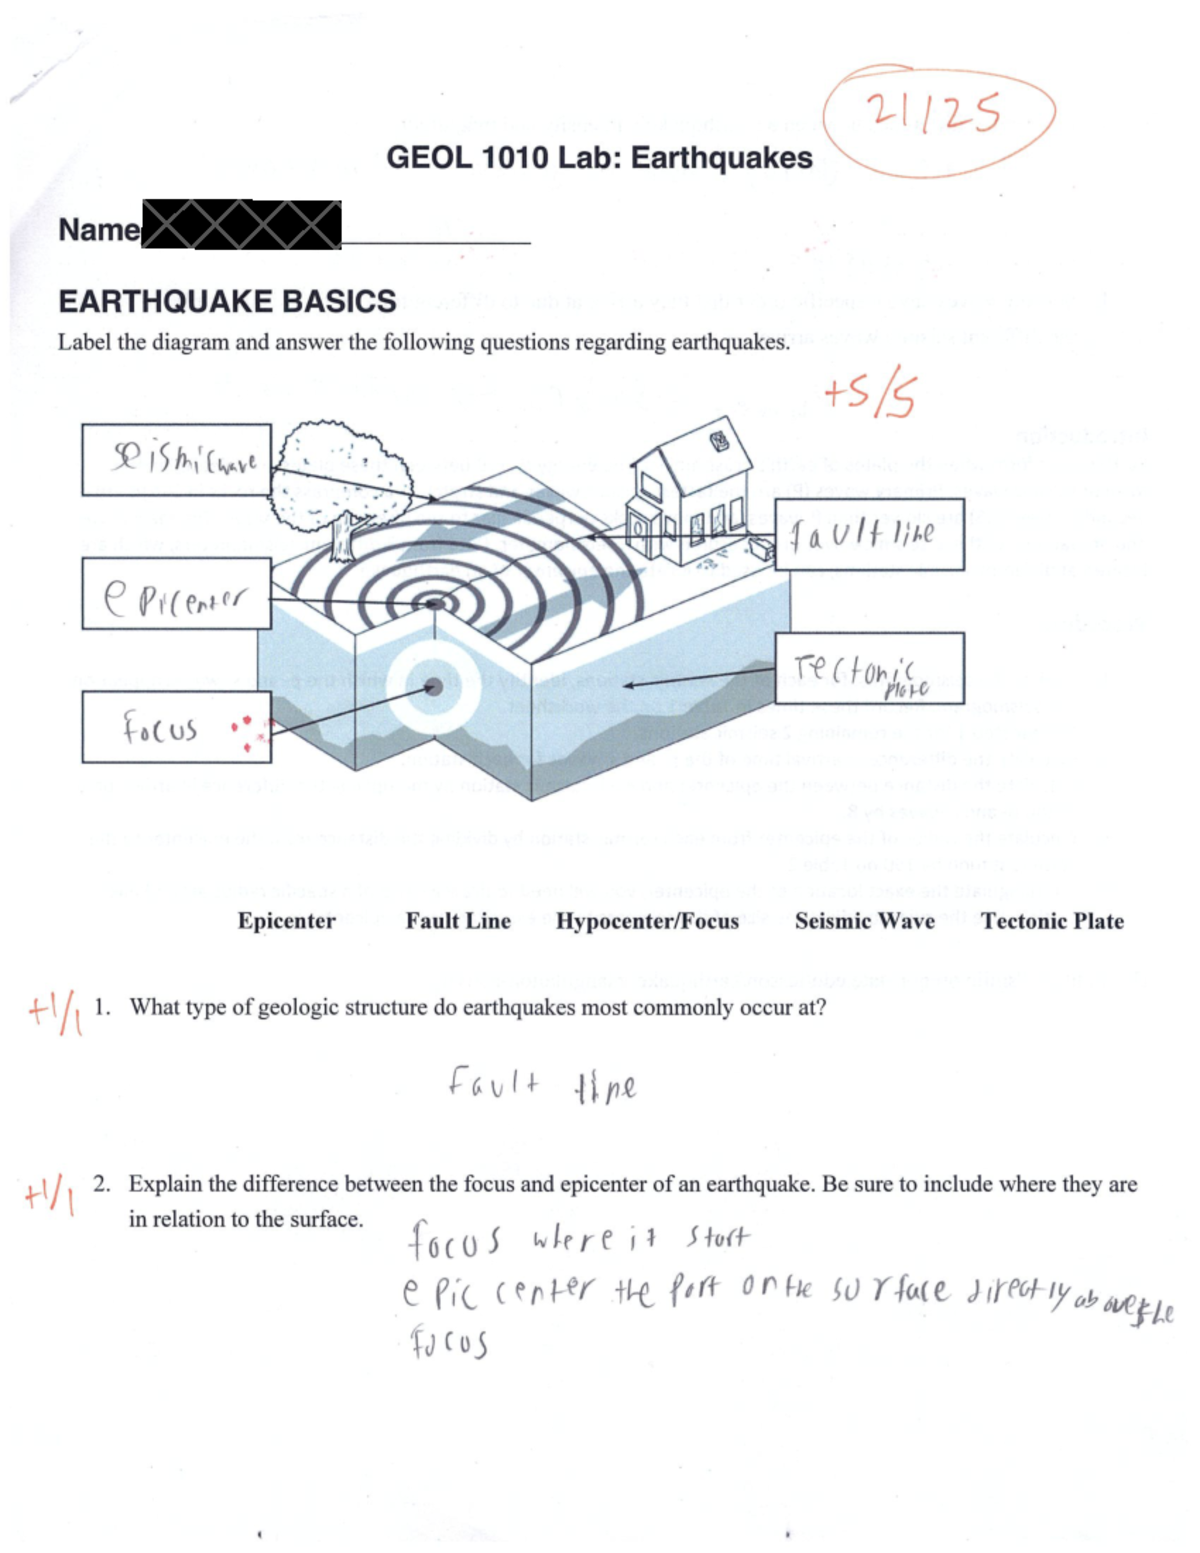 21/25
GEOL 1010 Lab: Earthquakes
Name
EARTHQUAKE BASICS
Label the diagram and answer the following questions regarding earthquakes.
+5/5
seismic wave
fault line
epicenter
Tectonic
plate
focus
Epicenter Fault Line Hypocenter/Focus Seismic Wave Tectonic Plate
+1/1 1. What type of geologic structure do earthquakes most commonly occur at?
Fault line
+1/1 2. Explain the difference between the focus and epicenter of an earthquake. Be sure to include where they are
in relation to the surface.
focus where it start
epic center the part on the surface directly above the
focus